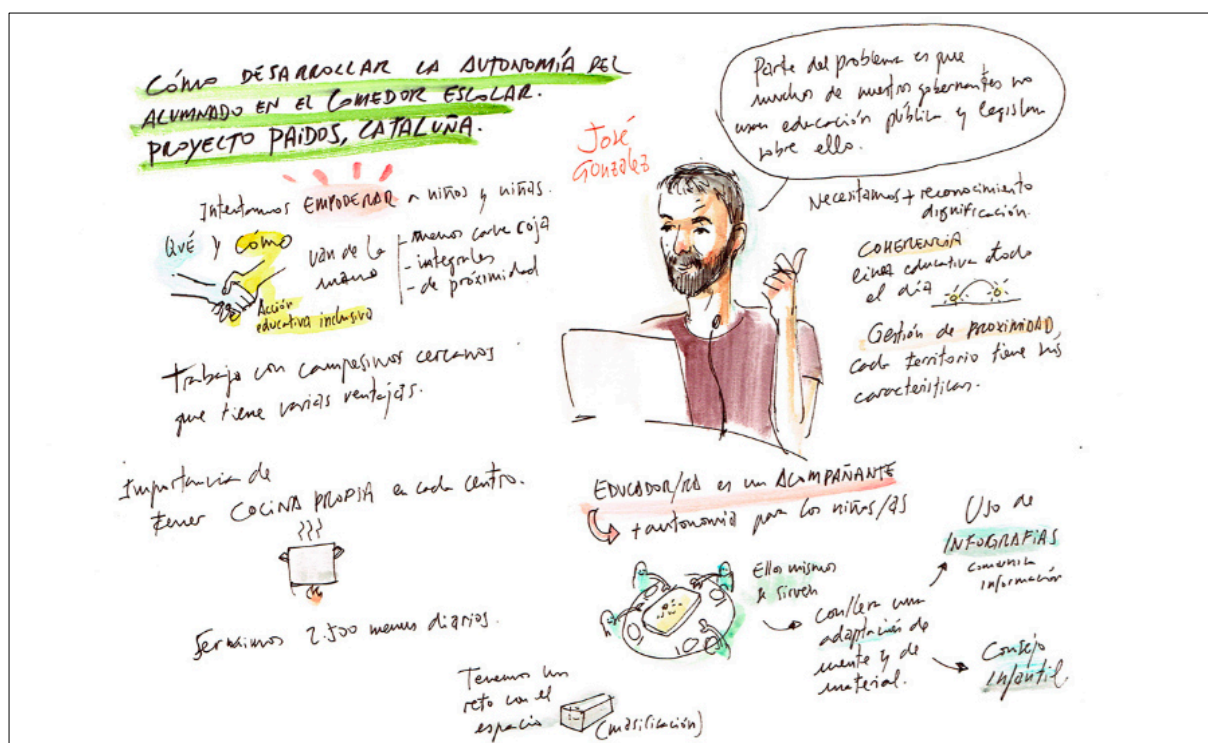 CÓMO DESARROLLAR LA AUTONOMÍA DEL
ALUMNADO EN EL COMEDOR ESCOLAR.
PROYECTO PAIDOS, CATALUÑA.
Intentamos EMPODERAR a niños y niñas.
QUÉ y CÓMO
van de la
mano
- menos carne roja
- integrales
- de próximidad
Acción
educativa inclusiva
Trabajo con campesinos cercanos
que tiene varias ventajas.
Importancia de
tener COCINA PROPIA en cada centro.
Servimos 2.500 menus diarios.
Tenemos un
reto con el
espacio
(masificación)
José
González
Parte del problema es que
muchos de nuestros gobernantes no
usan educación pública y legislan
sobre ello.
Necesitamos + reconocimiento
dignificación.
COHERENCIA
línea educativa todo
el día
Gestión de PROXIMIDAD,
cada territorio tiene sus
características.
EDUCADOR/RA es un ACOMPAÑANTE
+ autonomía para los niños/as
Ellos mismos
se sirven
conlleva una
adaptación de
mente y de
material.
Uso de
INFOGRAFÍAS
comunica
información
Consejo
Infantil